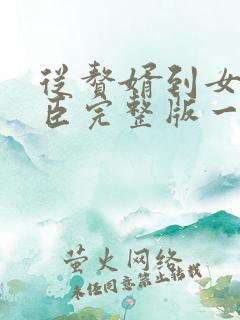 从赘婿到女
臣完整版一
萤火网络
未经同意禁止转载